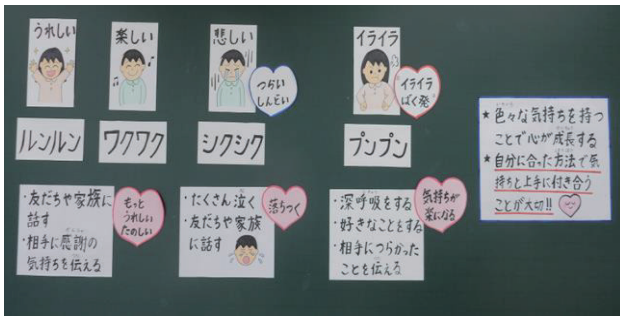 うれしい
楽しい
悲しい
つらい
しんどい
イライラ
イライラ
ばく発
ルンルン
ワクワク
シクシク
プンプン
・友だちや家族に
話す
・相手に感謝の
気持ちを伝える
もっと
うれしい
たのしい
・たくさん泣く
・友だちや家族
に話す
落ちつく
・深呼吸をする
・好きなことをする
・相手につらかった
ことを伝える
気持ちが
楽になる
★色々な気持ちを持つ
ことで心が成長する
★自分に合った方法で気
持ちと上手に付き合う
ことが大切!!